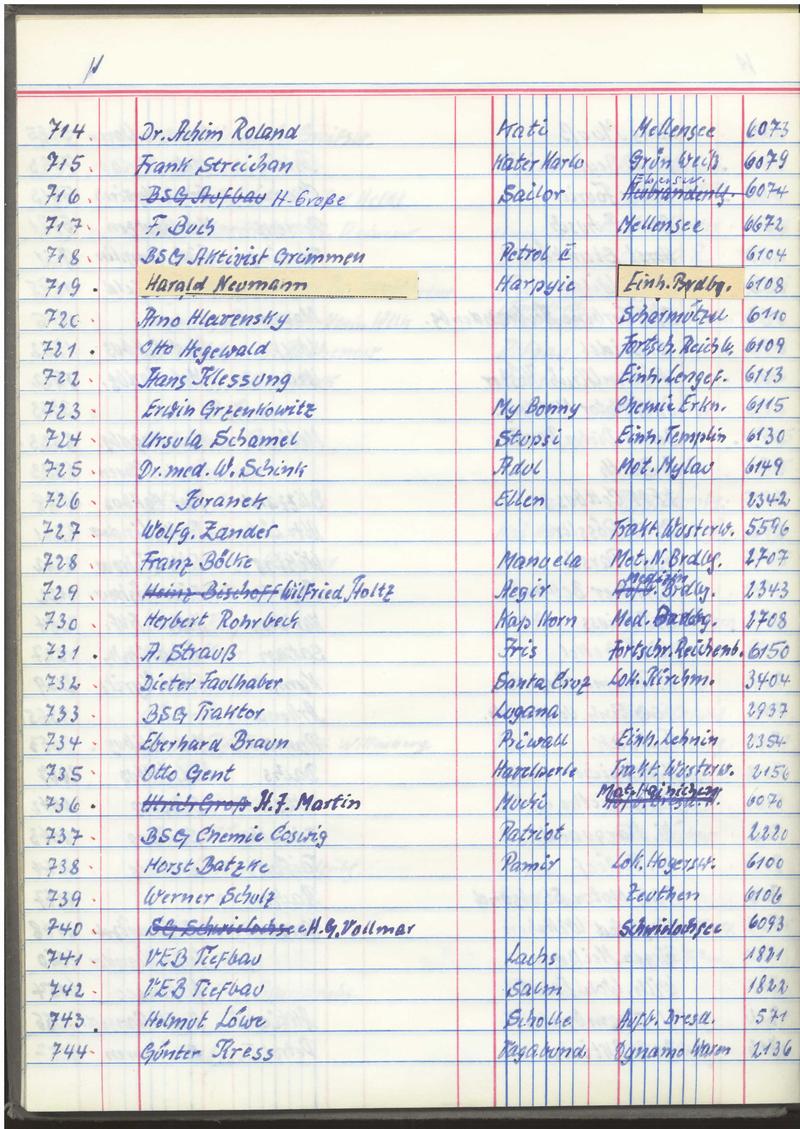 714. Dr. Achim Roland Kati Mellensee 6073
715. Frank Streichan Kater Karlo Grün Weiß 6079
716. BSG Aufbau H. Große Sailor Ebersw. 6074
717. F. Buch Mellensee 6672
718. BSG Aktivist Grimmen Petrol II 6104
719. Harald Neumann Harpyie Einh. Brdbg. 6108
720. Arno Hlavensky Scharmützel 6110
721. Otto Hegewald Fortsch. Reichb. 6109
722. Hans Klessung Einh. Lengef. 6113
723. Erwin Grzenkowitz My Bonny Chemie Erkn. 6115
724. Ursula Schamel Stupsi Einh. Templin 6130
725. Dr. med. W. Schink Adol Mot. Mylau 6149
726. Juranek Ellen 2342
727. Wolfg. Zander Trakt. Wusterw. 5596
728. Franz Bölke Manuela Met. N. Brdbg. 2707
729. Heinz Bischoff Wilfried Holtz Aegir Medizin Brdbg. 2343
730. Herbert Rohrbeck Kap Horn Med. Brdbg. 2708
731. A. Strauß Iris Fortschr. Reichenb. 6150
732. Dieter Faulhaber Santa Cruz Lok. Kirchm. 3404
733. BSG Traktor Lugana 2937
734. Eberhard Braun Priwall Einh. Lehnin 2354
735. Otto Gent Havelperle Trakt. Wusterw. 2156
736. Ulrich Groß H. J. Martin Mucki Mot. Hainichen 6070
737. BSG Chemie Coswig Patriot 2220
738. Horst Batzke Pamir Lok. Hogersw. 6100
739. Werner Schulz Zeuthen 6106
740. SG Schwielochsee H. G. Vollmar Schwielochsee 6093
741. VEB Tiefbau Lachs 1821
742. VEB Tiefbau Salm 1822
743. Helmut Löwe Scholle Aufb. Dresd. 571
744. Günter Kress Vagabund Dynamo Waren 2136